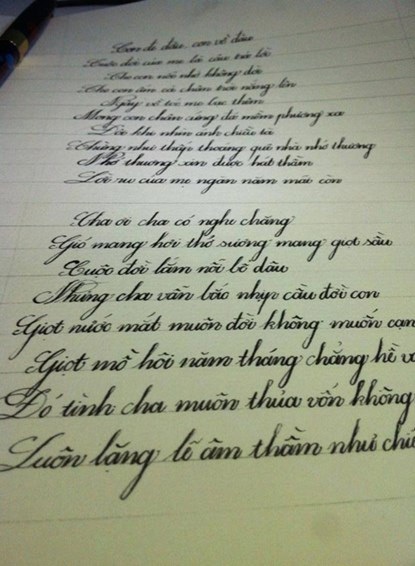 Con đi đâu, con về đâu
Cuộc đời của mẹ là câu trả lời
Cho con nôi nhỏ không đời
Cho con ấm cả chân trời nắng lên
Ngày về tóc mẹ bạc thêm
Mong con chân cứng đá mềm phương xa
Đôi khi nhìn ánh chiều tà
Chừng như thấp thoáng quê nhà nhớ thương
Nhớ thương xin được hát thầm
Lời ru của mẹ ngàn năm mãi còn
Cha ơi cha có nghe chăng
Gió mang hơi thở sương mang giọt sầu
Cuộc đời lắm nỗi bể dâu
Nhưng cha vẫn bắc nhịp cầu đời con
Giọt nước mắt muôn đời không muốn cạn
Giọt mồ hôi năm tháng chẳng hề
Đó tình cha muôn thủa vốn không
Luôn lặng lẽ âm thầm như